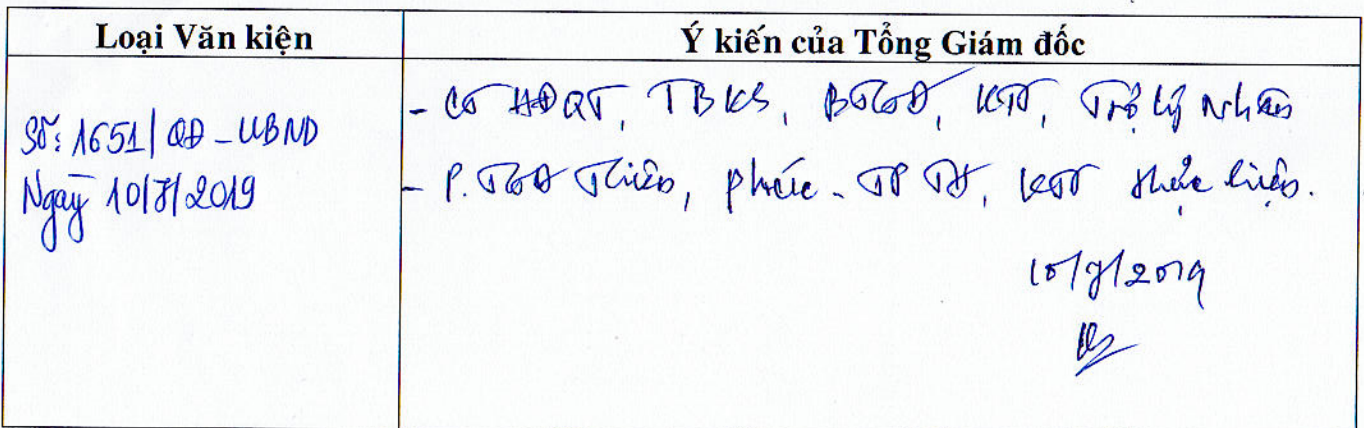 Loại Văn kiện
Ý kiến của Tổng Giám đốc
Số: 1651/QĐ-UBND
Ngày 10/7/2019
- CT HĐQT, TBKS, BTGĐ, KTT, Trợ lý Nhân
- P. TGĐ Thiên, Phúc - TP TH, KTT thực hiện.
10/7/2019